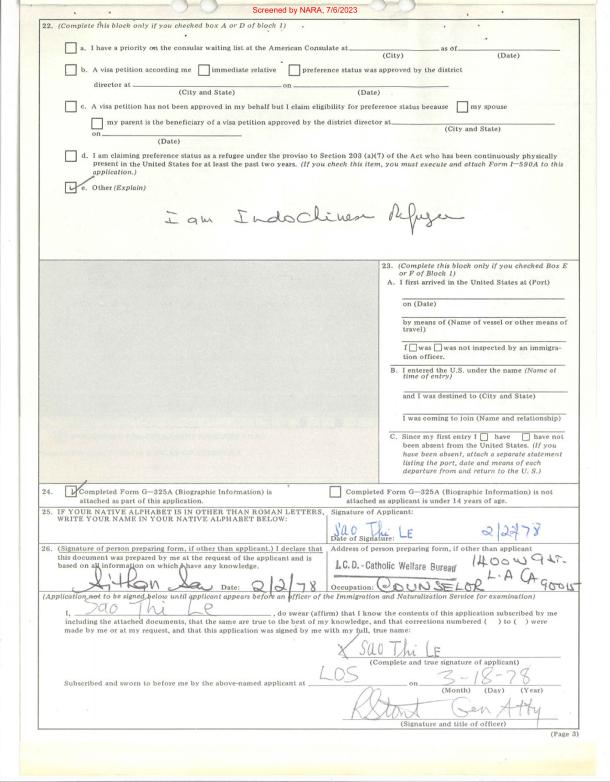 Screened by NARA, 7/6/2023
22. (Complete this block only if you checked box A or D of block 1)
a. I have a priority on the consular waiting list at the American Consulate at as of
(City) (Date)
b. A visa petition according me immediate relative preference status was approved by the district
director at on
(City and State) (Date)
c. A visa petition has not been approved in my behalf but I claim eligibility for preference status because my spouse
my parent is the beneficiary of a visa petition approved by the district director at
(City and State)
on
(Date)
d. I am claiming preference status as a refugee under the proviso to Section 203 (a)(7) of the Act who has been continuously physically
present in the United States for at least the past two years. (If you check this item, you must execute and attach Form I-590A to this
application.)
e. Other (Explain)
I am Indochinese Refugee
23. (Complete this block only if you checked Box E
or F of Block 1)
A. I first arrived in the United States at (Port)
on (Date)
by means of (Name of vessel or other means of
travel)
I was was not inspected by an immigra-
tion officer.
B. I entered the U.S. under the name (Name at
time of entry)
and I was destined to (City and State)
I was coming to join (Name and relationship)
C. Since my first entry I have have not
been absent from the United States. (If you
have been absent, attach a separate statement
listing the port, date and means of each
departure from and return to the U.S.)
24. Completed Form G-325A (Biographic Information) is
attached as part of this application.
Completed Form G-325A (Biographic Information) is not
attached as applicant is under 14 years of age.
25. IF YOUR NATIVE ALPHABET IS IN OTHER THAN ROMAN LETTERS,
WRITE YOUR NAME IN YOUR NATIVE ALPHABET BELOW:
Signature of Applicant:
Sao Thi LE 2/2/78
Date of Signature:
26. (Signature of person preparing form, if other than applicant.) I declare that
this document was prepared by me at the request of the applicant and is
based on all information on which I have any knowledge.
Date: 2/2/78
Address of person preparing form, if other than applicant
I.C.D.-Catholic Welfare Bureau 1400 W 9 st.
L.A CA 90015
Occupation: COUNSELOR
(Application not to be signed below until applicant appears before an officer of the Immigration and Naturalization Service for examination)
I, Sao Thi Le, do swear (affirm) that I know the contents of this application subscribed by me
including the attached documents, that the same are true to the best of my knowledge, and that corrections numbered ( ) to ( ) were
made by me or at my request, and that this application was signed by me with my full, true name:
X Sao Thi LE
(Complete and true signature of applicant)
Subscribed and sworn to before me by the above-named applicant at LOS on 3-18-78
(Month) (Day) (Year)
Gen Atty
(Signature and title of officer)
(Page 3)